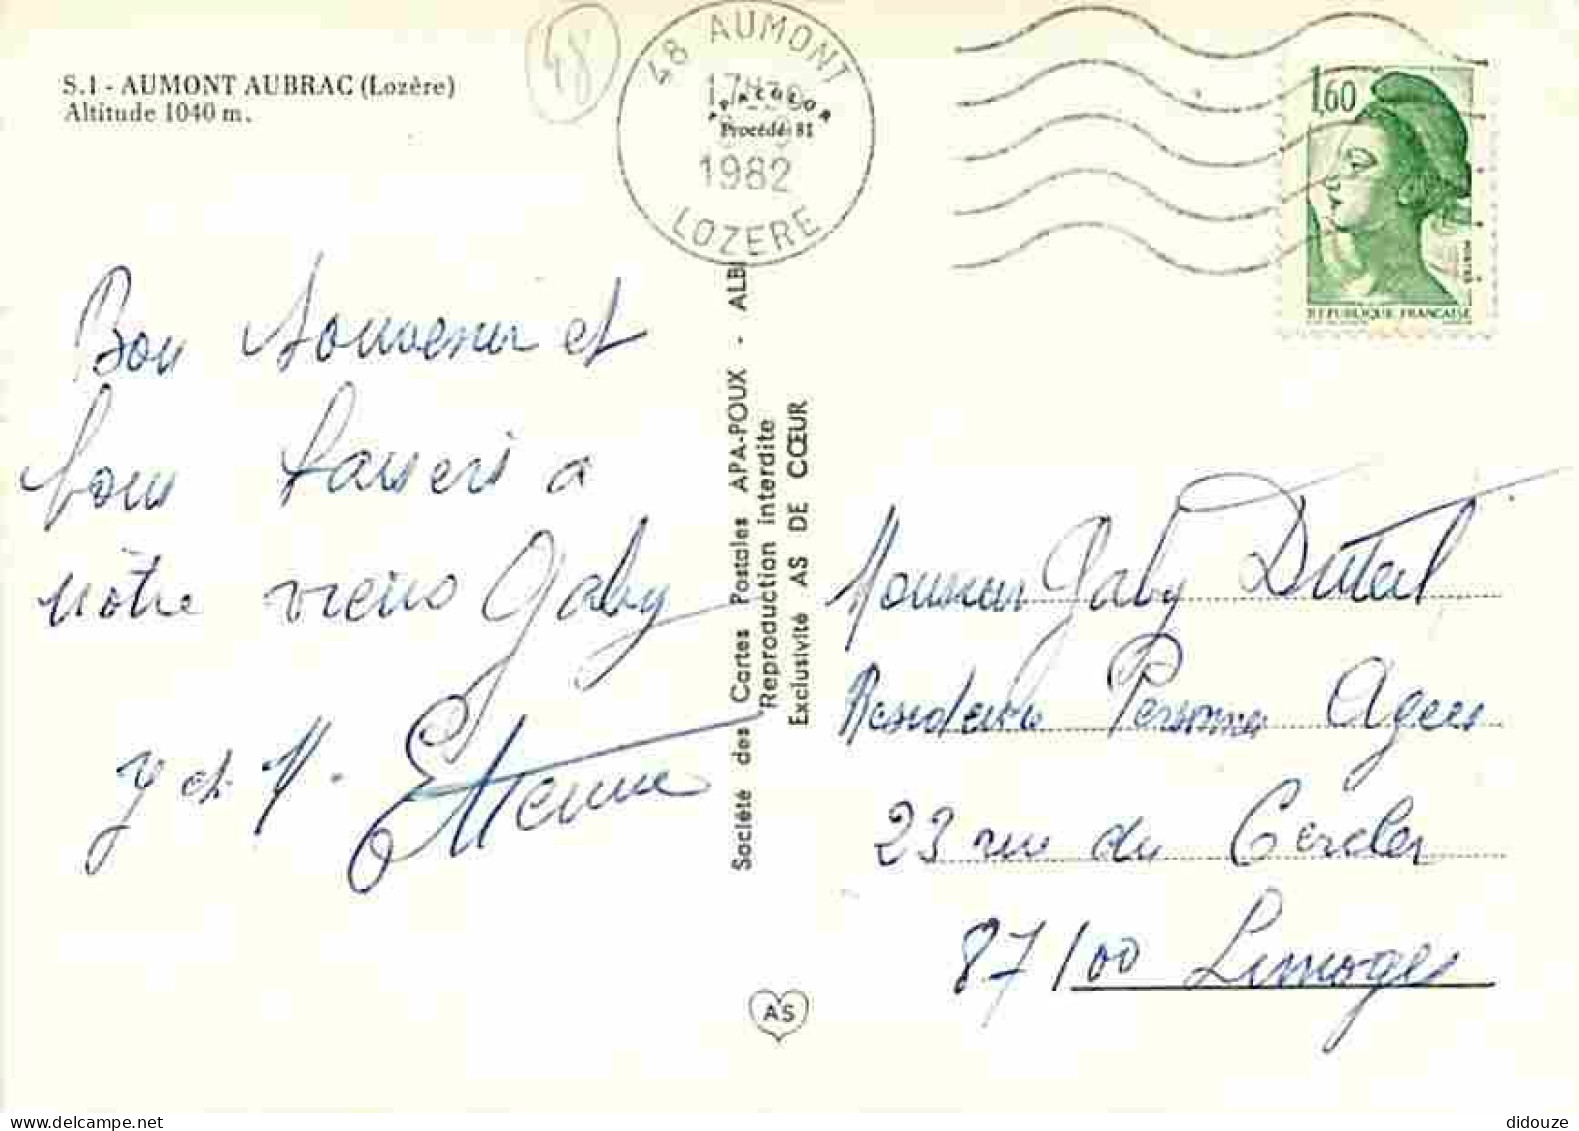 S.1 - AUMONT AUBRAC (Lozère)
Altitude 1040 m.
48
48 AUMONT
1982
LOZERE
APACOLOR
Procédé 81
1,60
POSTES
REPUBLIQUE FRANCAISE
Bon souvenir et
bons baisers a
nôtre vieux Gaby
Y et M. Etienne
Société des Cartes Postales APA-POUX - ALBI
Reproduction interdite
Exclusivité AS DE CŒUR
Monsieur Gaby Duteil
Residence Personnes Agees
23 rue du Cercler
87100 Limoges
AS
didouze